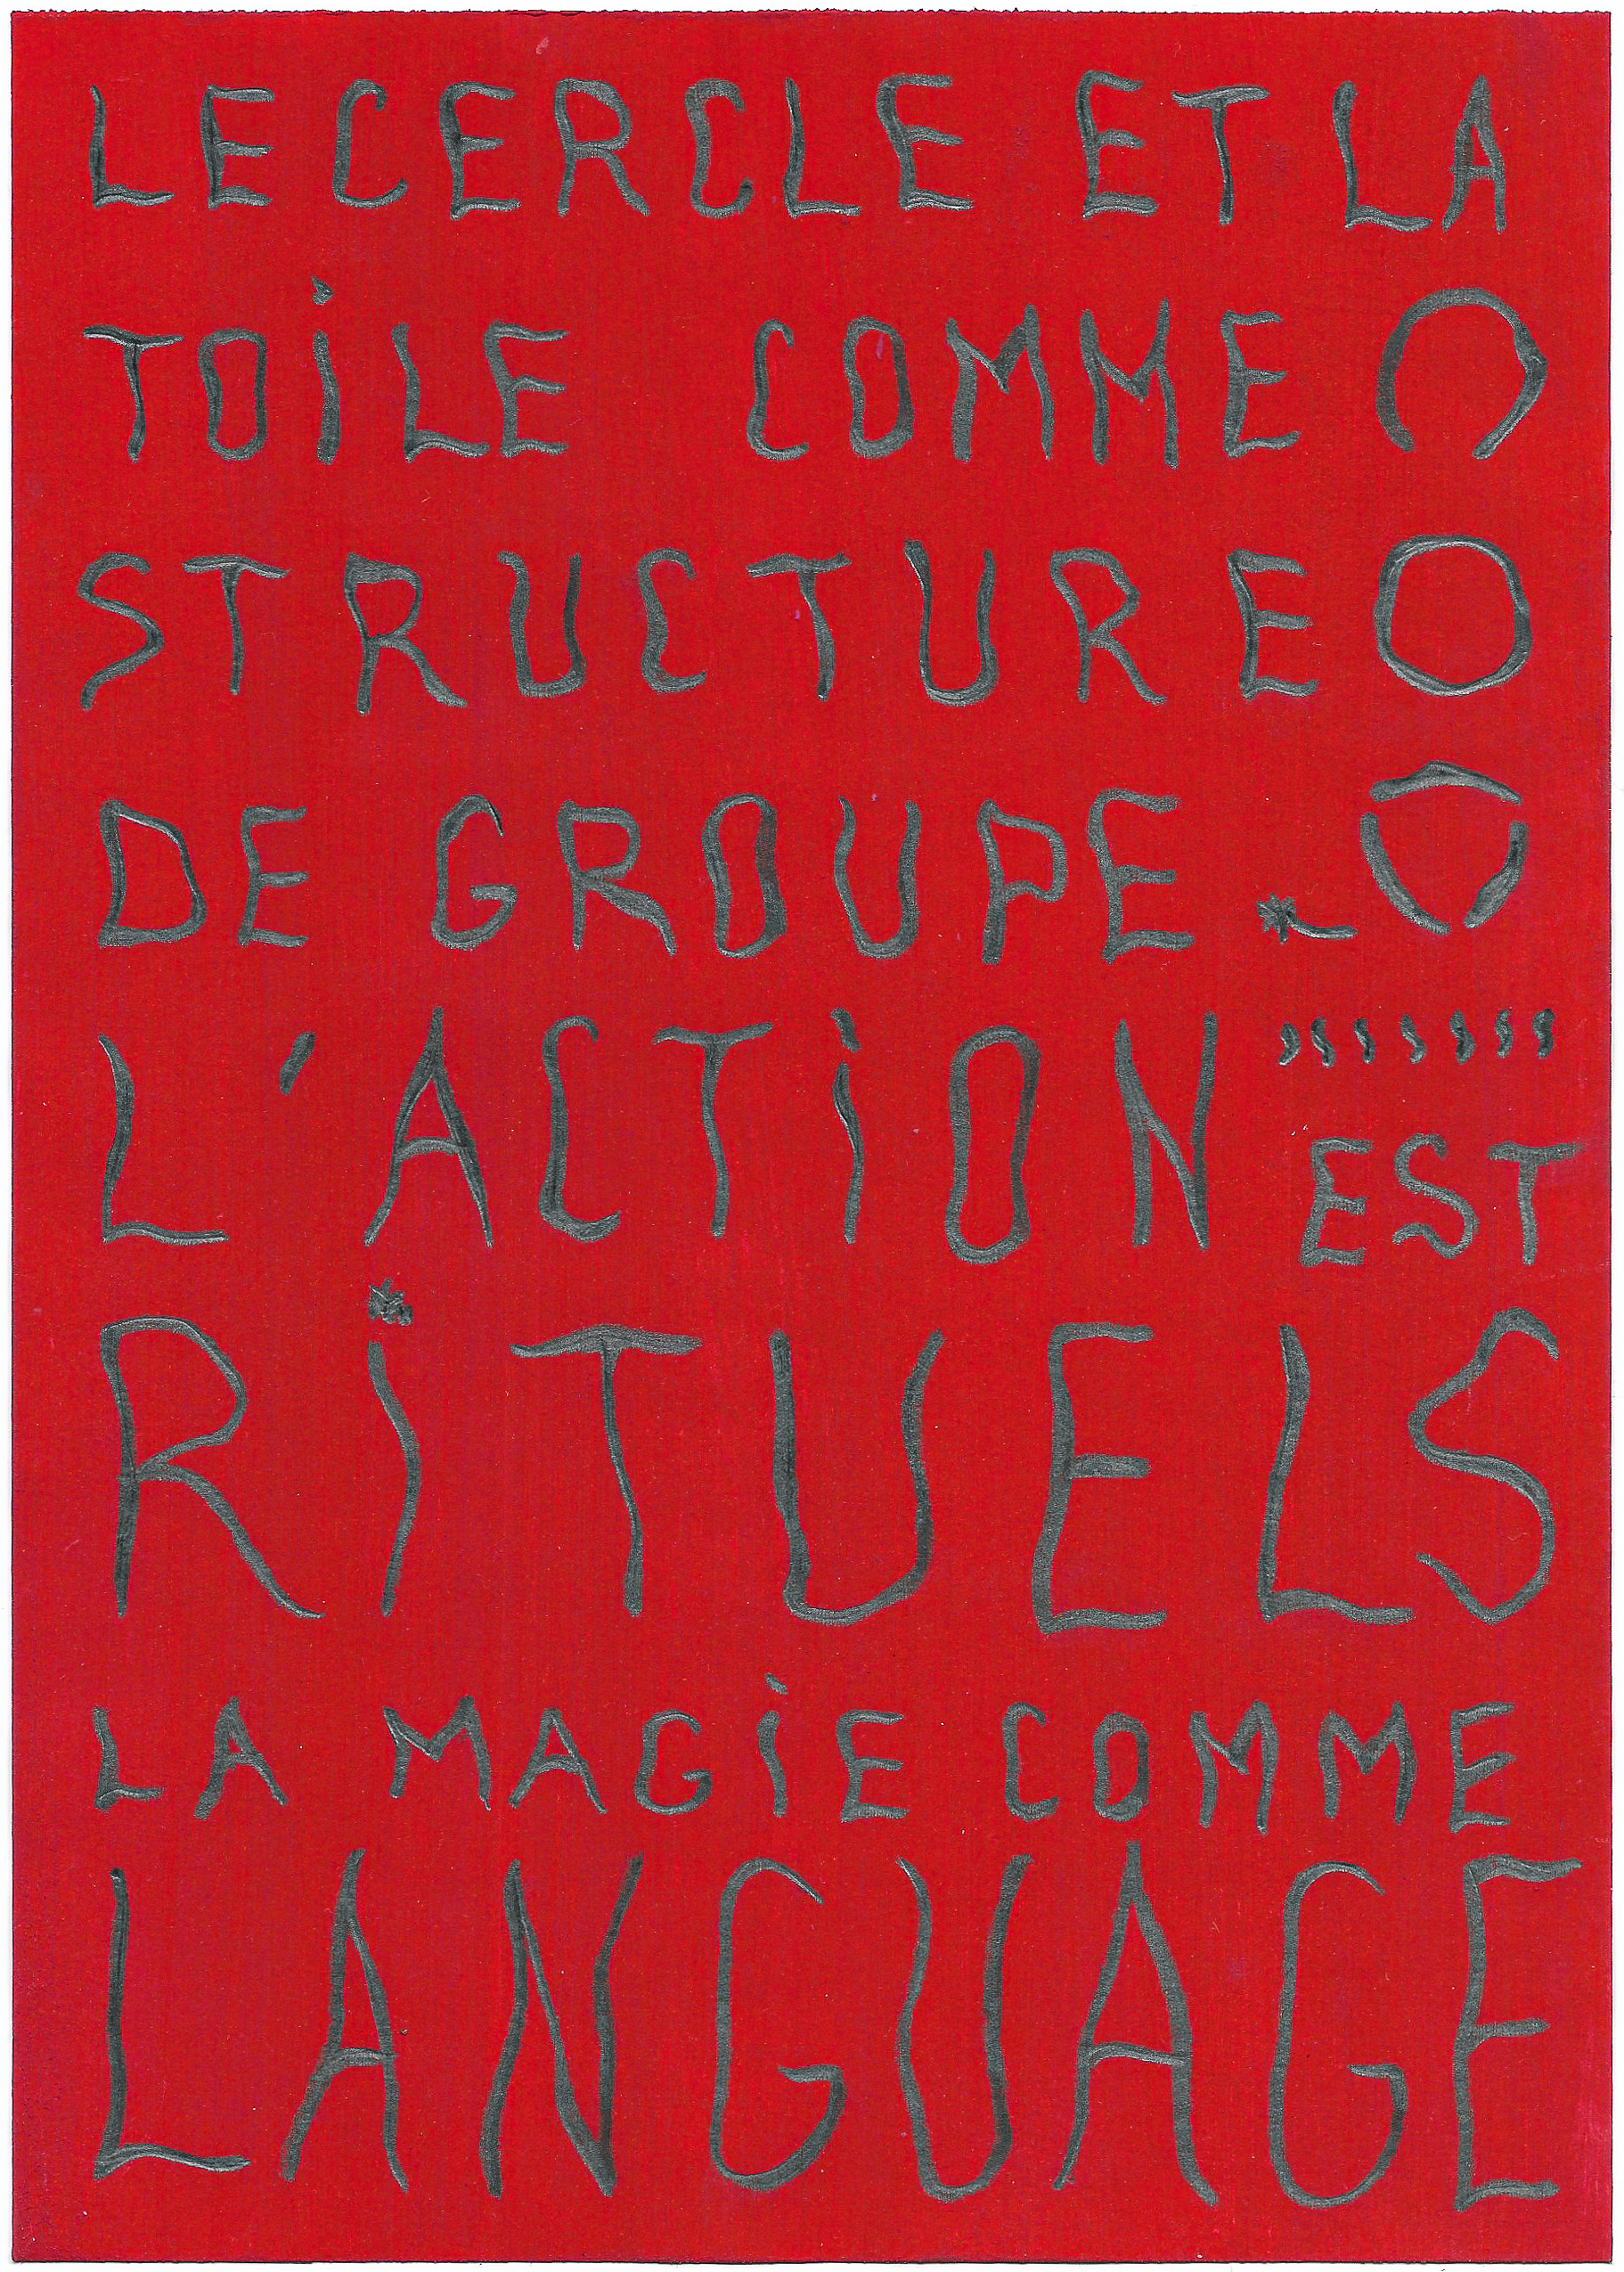 LE CERCLE ET LA
TOiLE COMME
STRUCTURE
DE GROUPE.
L'ACTiON EST
RiTUELS
LA MAGiE COMME
LANGUAGE